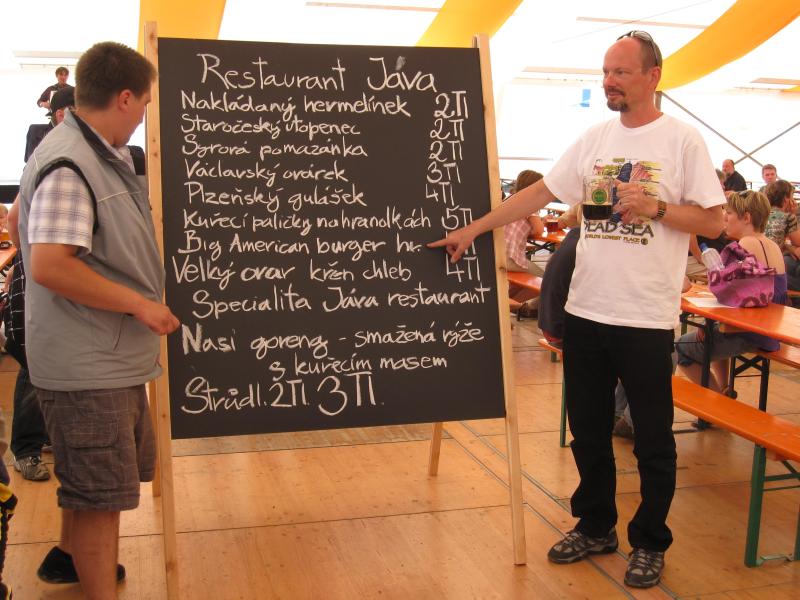 Restaurant Jáva
Nakládaný hermelínek 2Tl
Staročeský utopenec 2Tl
Syrová pomazánka 2Tl
Václavský ovárek 3Tl
Plzeňský gulášek 4Tl
Kuřecí paličky na hrandlkách 5Tl
Big American burger hr.
Velký ovar křen chleb 4Tl
Specialita Jáva restaurant
Nasi goreng - smažená rýže
s kuřecím masem
Strůdl. 2Tl 3Tl.
DEAD SEA
WORLD'S LOWEST PLACE